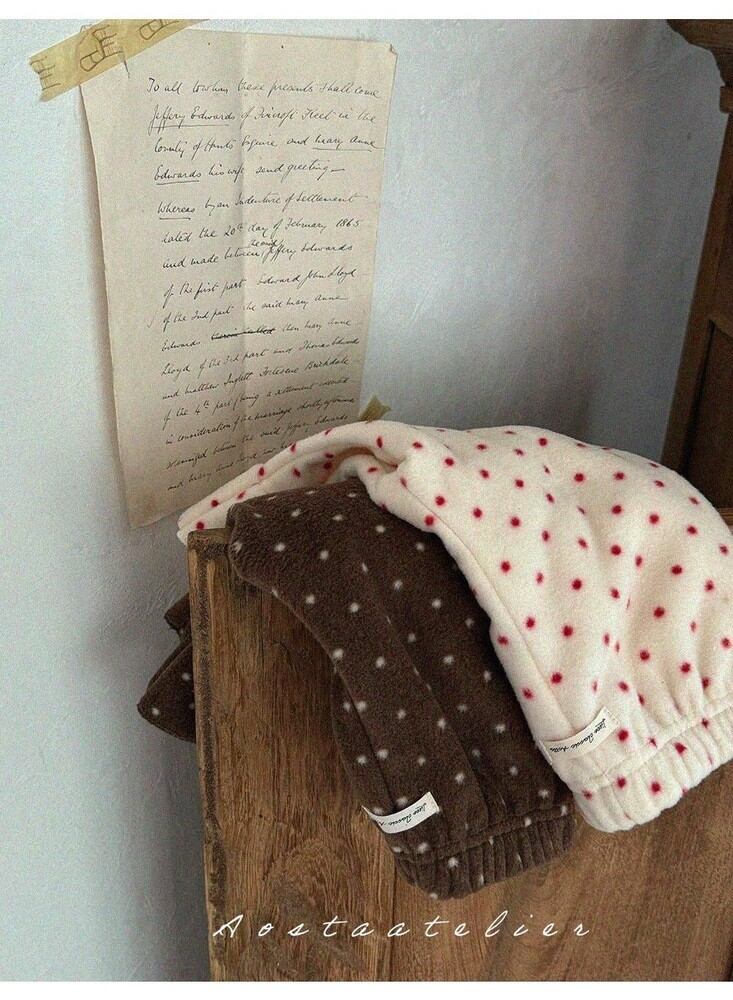 To all to whom these presents shall come
Jeffery Edwards of Fincroft Fleet in the
County of Hants Esquire and Mary Anne
Edwards his wife send greeting
Whereas by an Indenture of Settlement
dated the 20th day of February 1865
and made between the said Jeffery Edwards
of the first part Edward John Lloyd
of the 2nd part the said Mary Anne
Edwards then Mary Anne
Lloyd of the 3rd part and Thomas Edwards
and Matthew Inglett Fortescue Brickdale
of the 4th part (being a settlement executed
in consideration of the marriage shortly
solemnized between the said Jeffery Edwards
and Mary Anne Lloyd
Aostaatelier